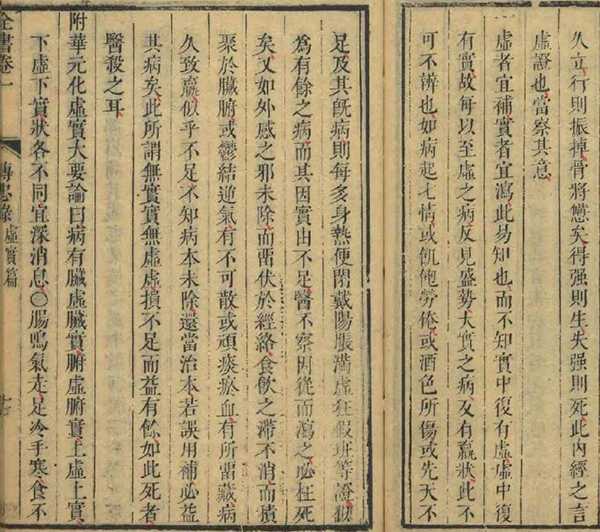 久立行則振掉骨將憊矣得强則生失强則死此內經之言
虛證也當察其意
虛者宜補實者宜瀉此易知也而不知實中復有虛虛中復
有實故每以至虛之病反見盛勢大實之病又有羸狀此不
可不辨也如病起七情或飢飽勞倦或酒色所傷或先天不
足及其既病則每多身熱便閉戴陽脹滿虛狂假斑等證似
爲有餘之病而其因實由不足醫不察因從而瀉之必枉死
矣又如外感之邪未除而畱伏於經絡食飲之滯不消而積
聚於臟腑或鬱結逆氣有不可散或頑痰瘀血有所畱藏病
久致羸似乎不足不知病本未除還當治本若誤用補必益
其病矣此所謂無實實無虛虛損不足而益有餘如此死者
醫殺之耳
附華元化虛實大要論曰病有臟虛臟實腑虛腑實上虛上實
下虛下實狀各不同宜深消息○腸鳴氣走足冷手寒食不
全書卷一 傳忠錄 虛實篇